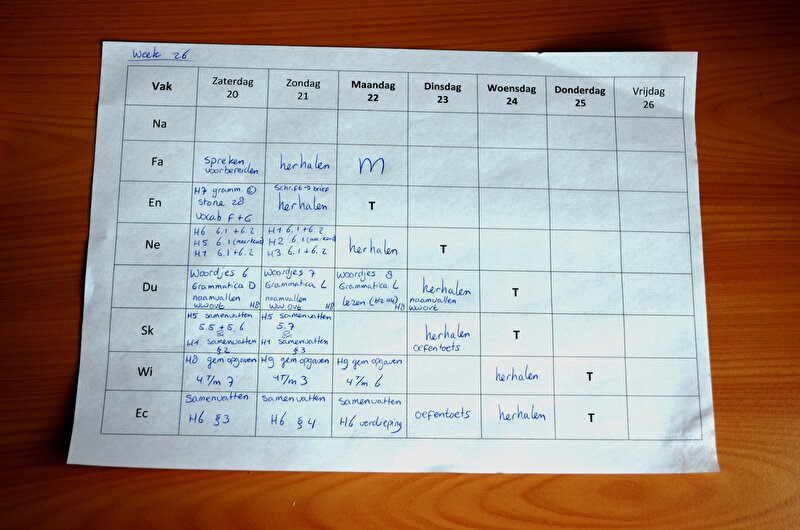 Week 26
Vak Zaterdag 20 Zondag 21 Maandag 22 Dinsdag 23 Woensdag 24 Donderdag 25 Vrijdag 26
Na
Fa spreken voorbereiden herhalen M
En H7 gramm © stone 28 vocab F + G schrift → brief herhalen T
Ne H6 6.1 + 6.2 H5 6.1 H1 6.1 + 6.2 H1 6.1 + 6.2 H2 6.1 H3 6.1 + 6.2 herhalen T
Du Woordjes 6 Grammatica D naamvallen ww ovt H8 Woordjes 7 Grammatica L naamvallen ww ovt H8 Woordjes 8 Grammatica L lezen H8 herhalen naamvallen ww ovt T
Sk H5 samenvatten 5.5 + 5.6 H1 samenvatten § 2 H5 samenvatten 5.7 H1 samenvatten § 3 herhalen oefentoets T
Wi H8 gem opgaven 4 T/m 7 H9 gem opgaven 4 T/m 3 H9 gem opgaven 4 T/m 6 herhalen T
Ec Samenvatten H6 § 3 Samenvatten H6 § 4 Samenvatten H6 verdieping oefentoets herhalen T